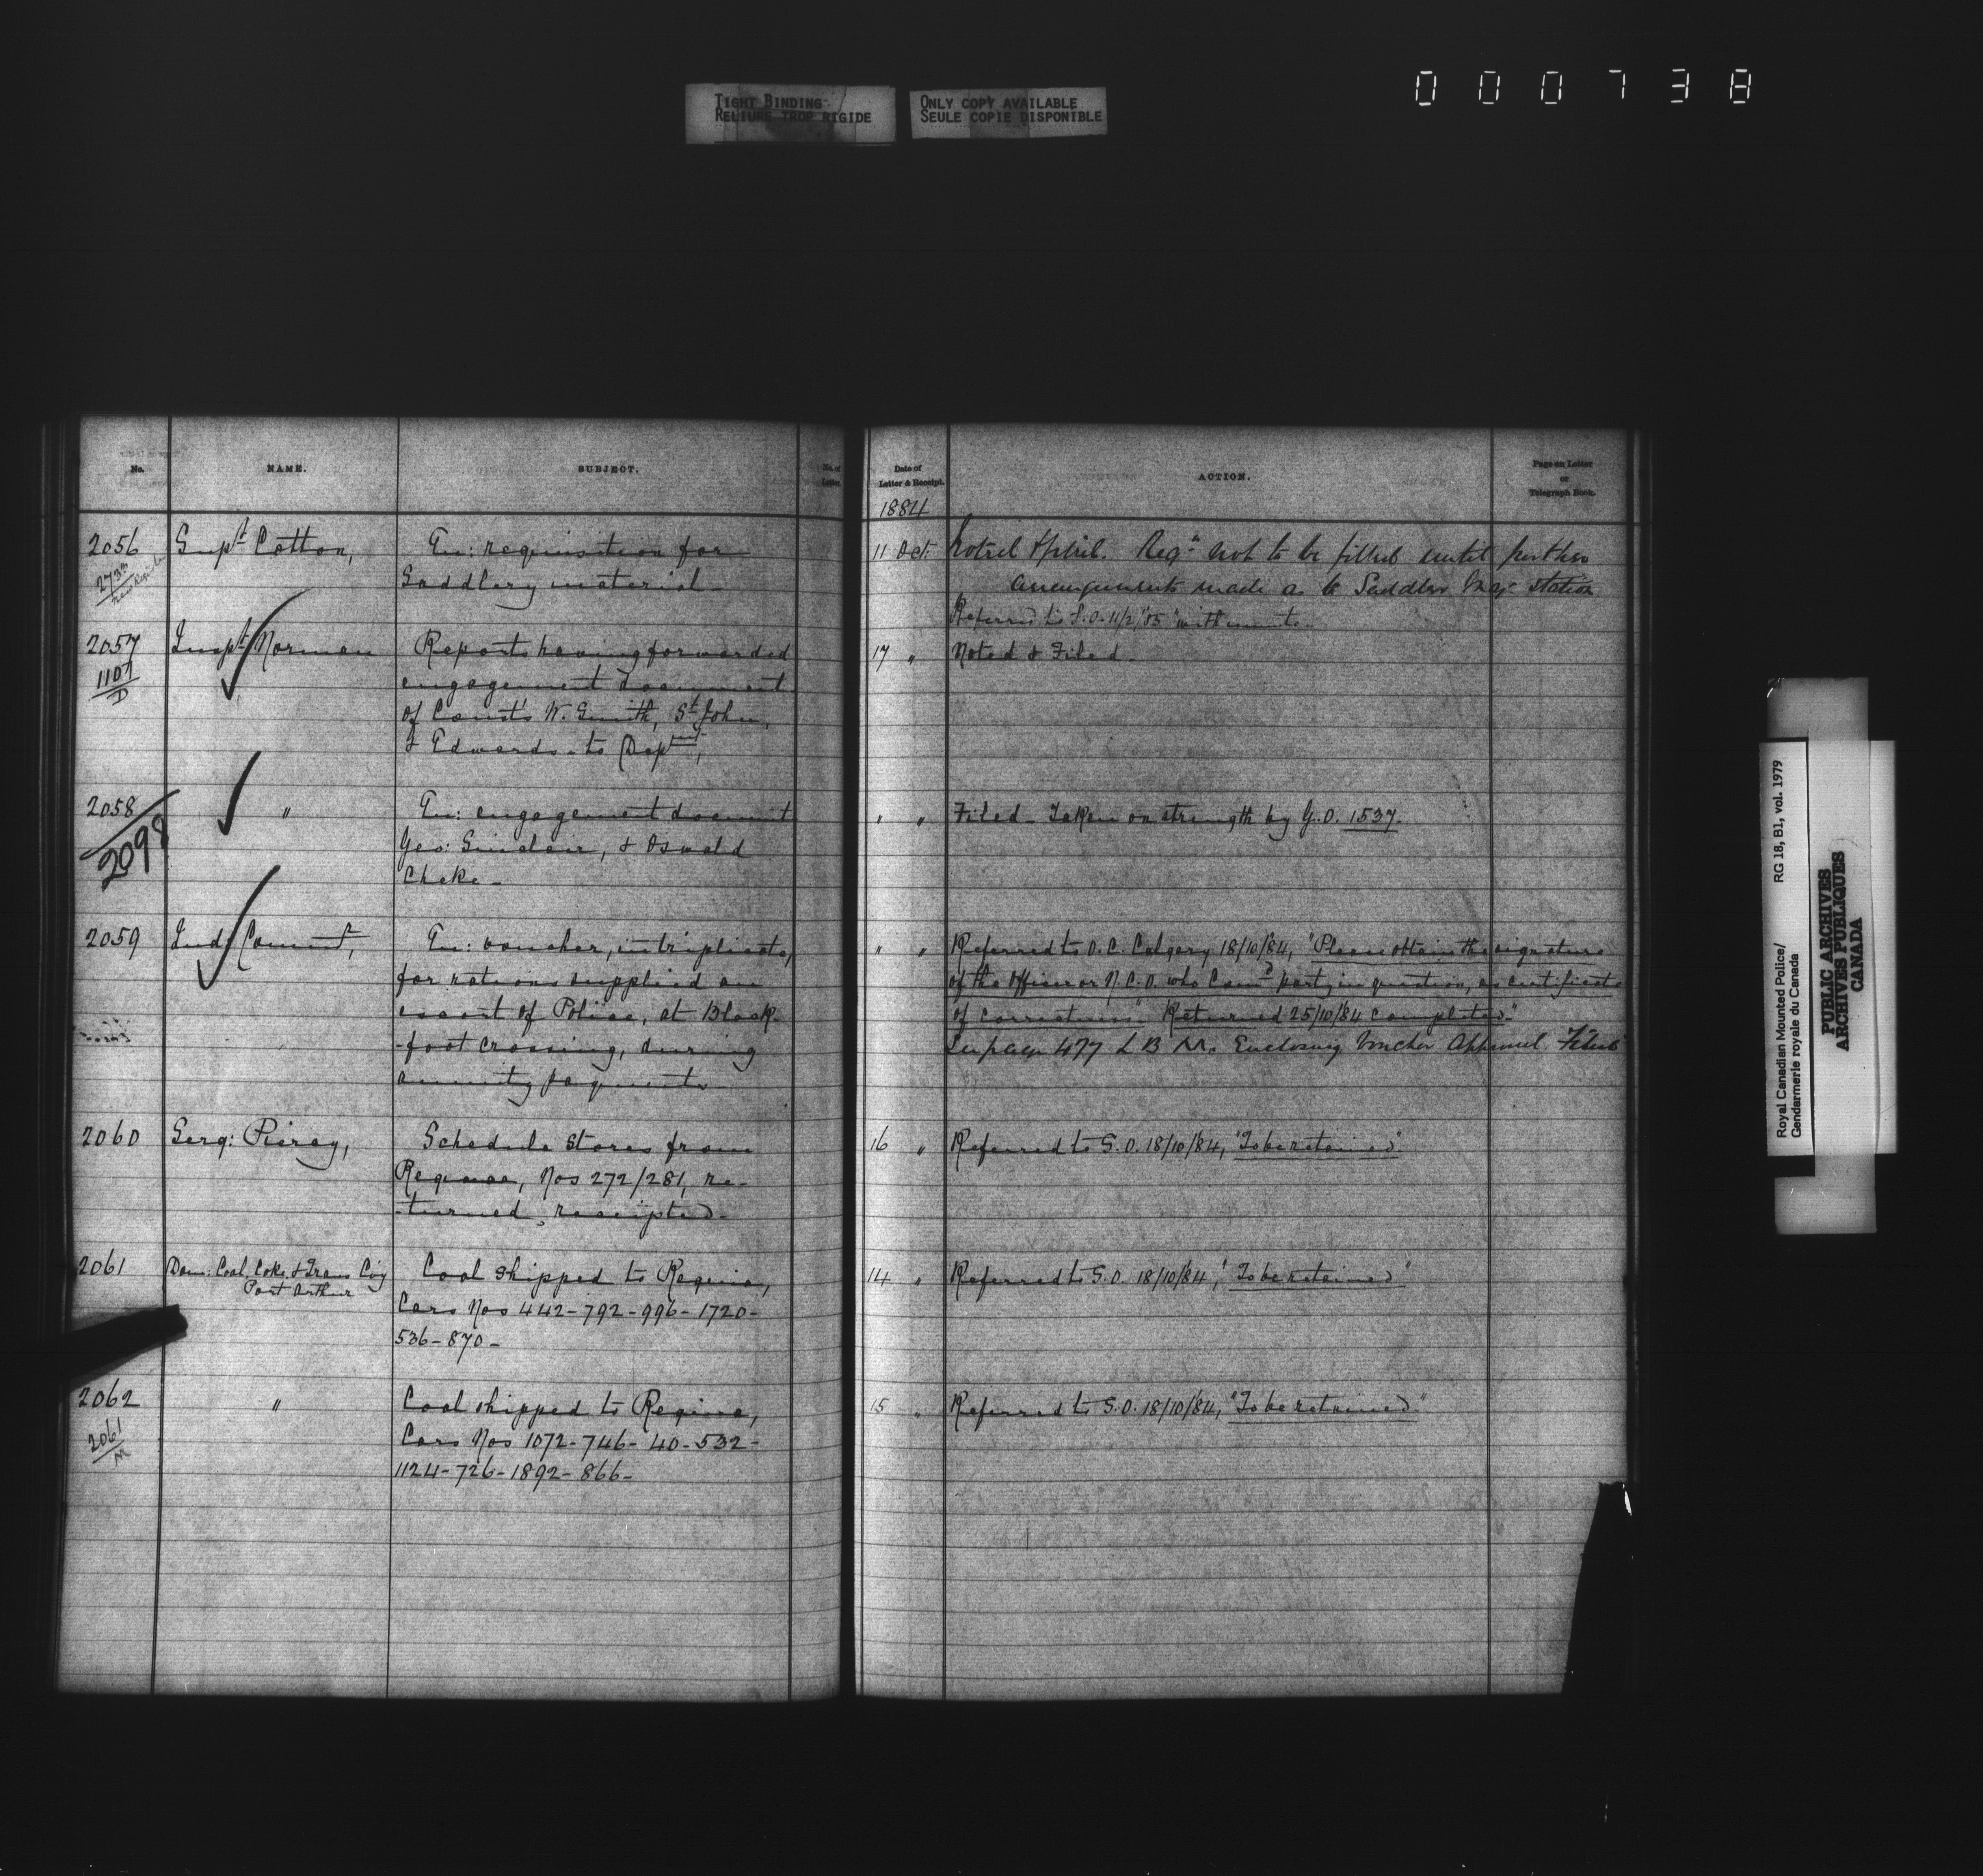 000738
TIGHT BINDING
RELIURE TROP RIGIDE
ONLY COPY AVAILABLE
SEULE COPIE DISPONIBLE
No.
NAME.
SUBJECT.
No. of Letter.
2056
Supt Cotton,
En: requisition for
Saddlery material
273
new Register
2057
1107
D
Inspt Norman
Reports having forwarded
engagement document
of Const's W. Smith, St John,
& Edwards - to Deptmt,
2058
2098
"
En: engagement document
Geo: Sinclair, & Oswald
Cheke -
2059
Ind:
En: voucher, in triplicate,
for rations supplied an
escort of Police, at Black-
-foot crossing, during
annuity payments
2060
Serg: Piercy,
Schedule stores from
Regina, Nos 272/281, re-
-turned, receipted -
2061
Dom: Coal, Coke & Trans Co'y
Port Arthur
Coal shipped to Regina,
Cars Nos 442 - 792 - 996 - 1720 -
536 - 870 -
2062
2061
M
"
Coal shipped to Regina,
Cars Nos 1072 - 746 - 40 - 532 -
1124 - 726 - 1892 - 866 -
Date of
Letter & Receipt.
ACTION.
Page on Letter
or
Telegraph Book.
1884
11 Oct: Noted & filed. Reqn not to be filled until further
arrangements made as to Saddler station
Referred to S.O. 11/2/85 with minute
17 " Noted & Filed -
" " Filed - Taken on strength by G.O. 1537.
" " Referred to O.C. Calgary 18/10/84, "Please obtain the signature
of the Officer or N.C.O. who Comd party in question, as certificate
of correctness" Returned 25/10/84 completed."
See page 477 L B M. Enclosing Voucher Approved Filed
16 " Referred to S.O. 18/10/84, "To be retained"
14 " Referred to S.O. 18/10/84, "To be retained"
15 " Referred to S.O. 18/10/84, "To be retained."
Royal Canadian Mounted Police/ RG 18, B1, vol. 1979
Gendarmerie royale du Canada
PUBLIC ARCHIVES
ARCHIVES PUBLIQUES
CANADA